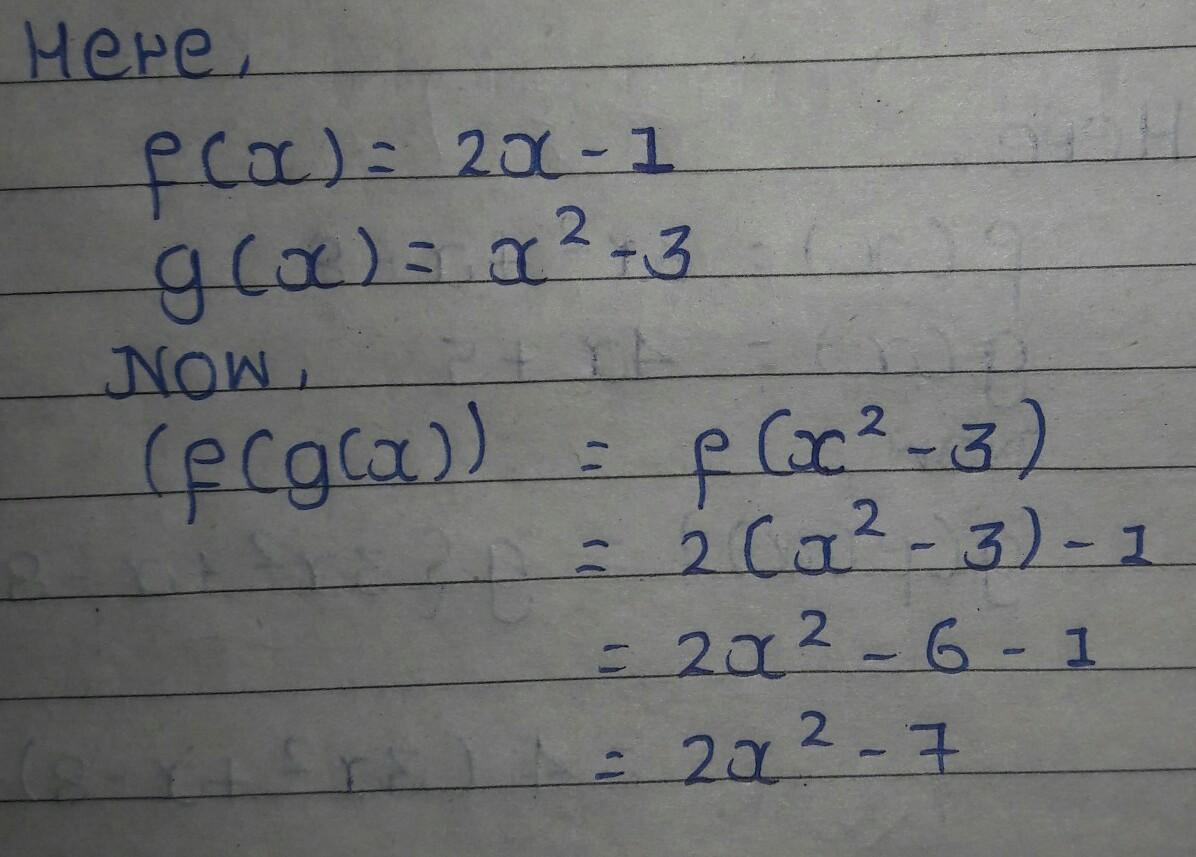 Here,
f(x) = 2x - 1
g(x) = x² - 3
Now,
(f(g(x)) = f(x² - 3)
= 2(x² - 3) - 1
= 2x² - 6 - 1
= 2x² - 7